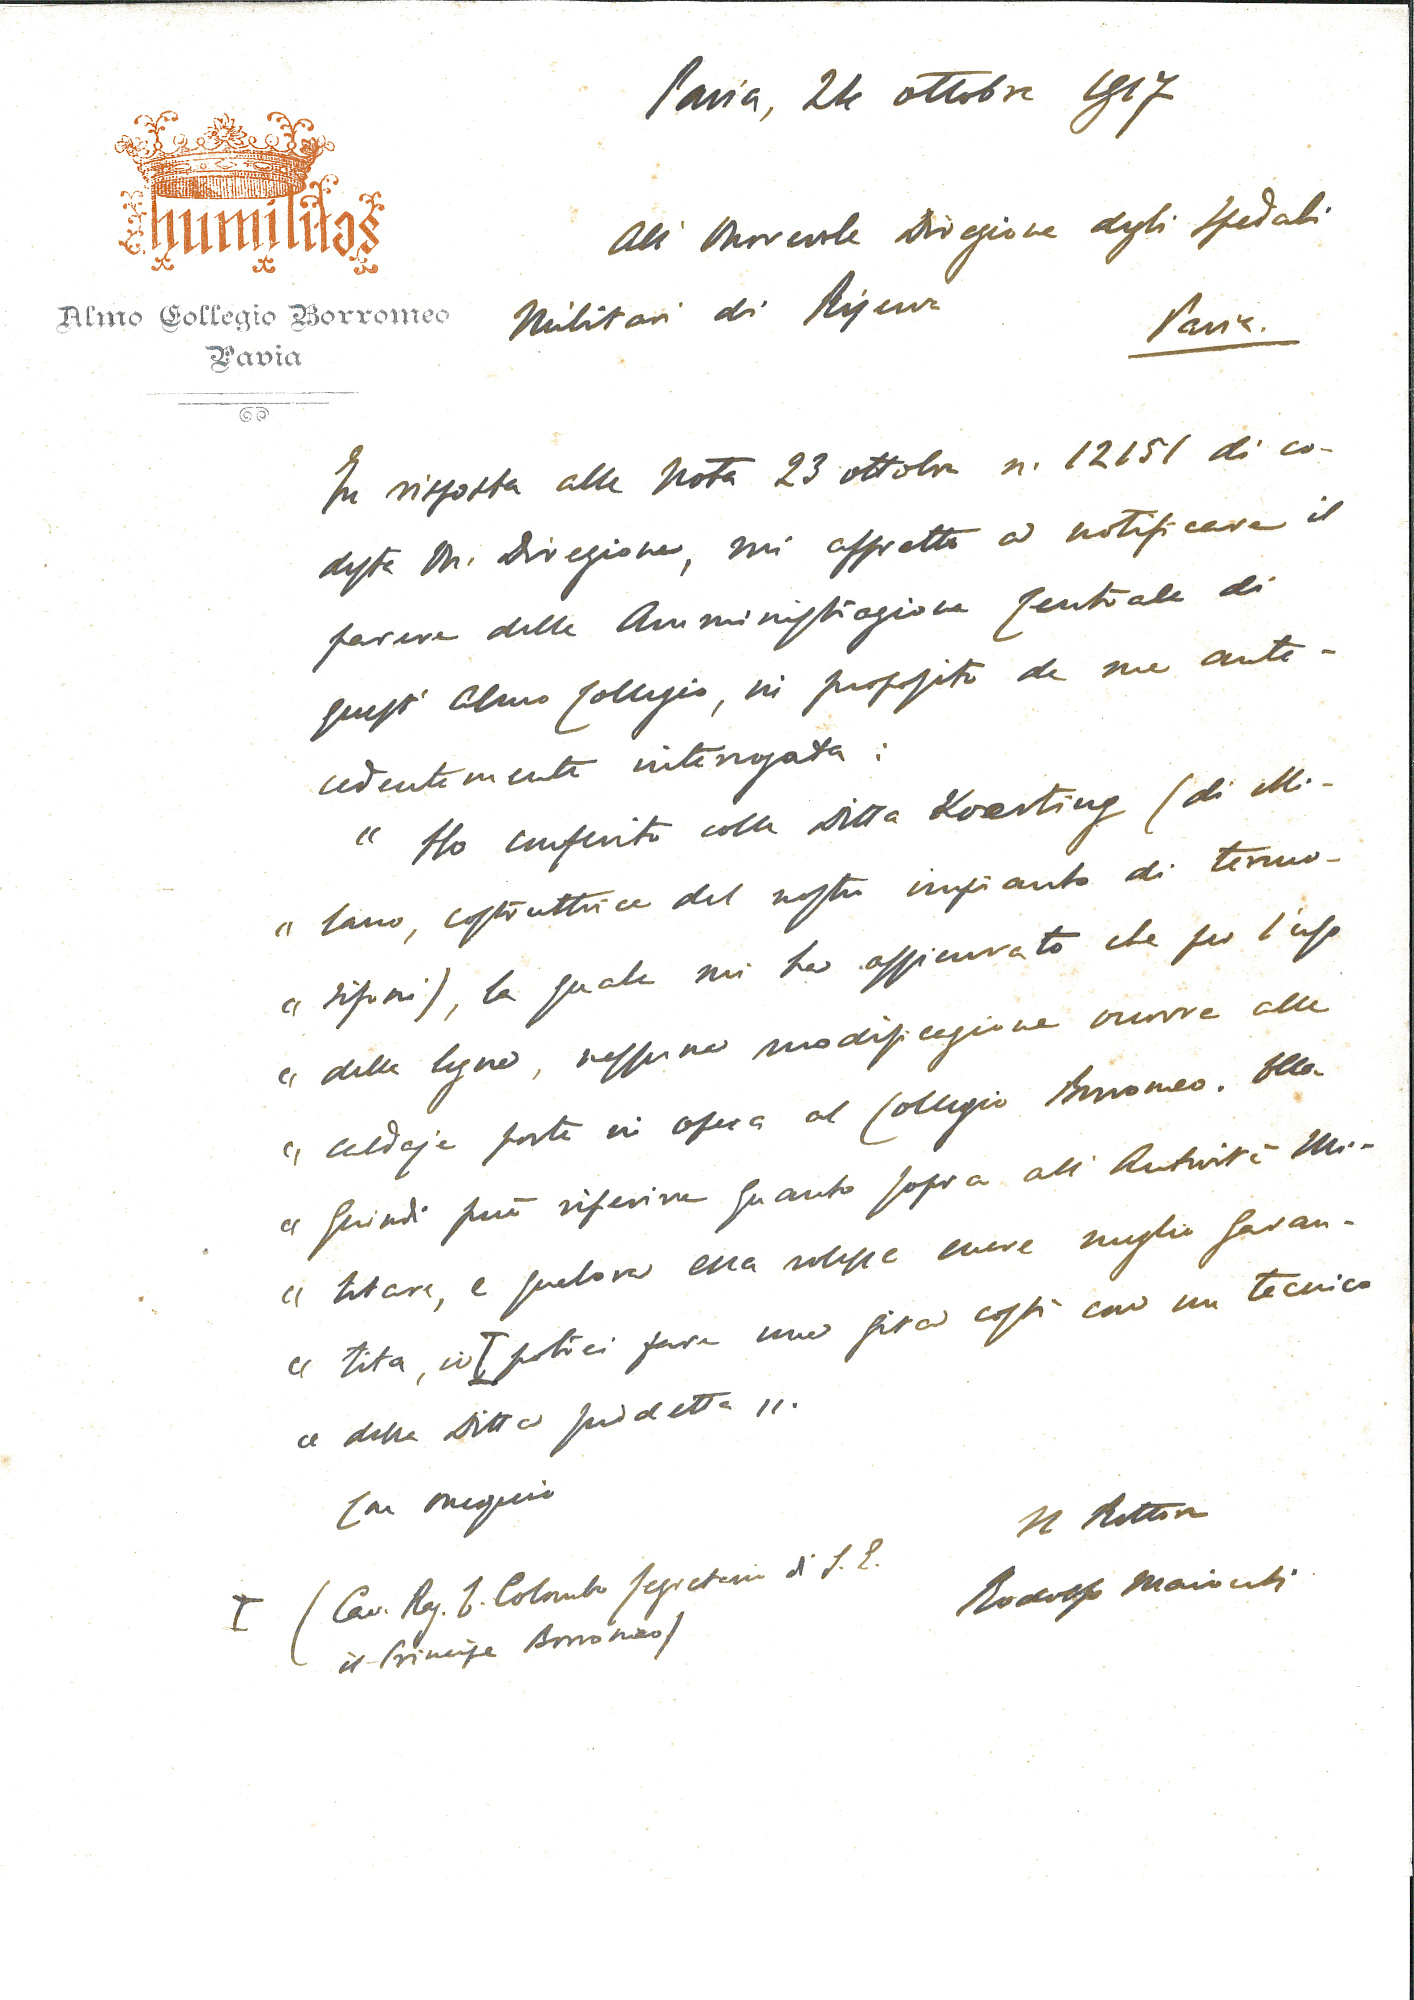 Pavia, 24 ottobre 1917
humilitas
Almo Collegio Borromeo
Pavia
All' Onorevole Direzione degli Spedali
Militari di Riserva
Pavia.
In risposta alla Nota 23 ottobre n. 12151 di co-
desta On. Direzione, mi affretto a notificare il
parere della Amministrazione Centrale di
quest' Almo Collegio, in proposito da me ante-
cedentemente interrogata:
" Ho conferito colla Ditta Koerting (di Mi-
" lano, costruttrice del nostro impianto di termo-
" sifoni), la quale mi ha assicurato che per l'uso
" della legna, nessuna modificazione occorre alle
" caldaje poste in opera al Collegio Borromeo. Ella
" quindi può riferire quanto sopra all' Autorità Mi-
" litare, e qualora essa volesse essere meglio garan-
" tita, io I potrei fare una gita costì con un tecnico
" della Ditta predetta ".
Con ossequio
Il Rettore
Rodolfo Maiocchi
I (Cav. Rag. G. Colombo Segretario di S. E.
il Principe Borromeo)